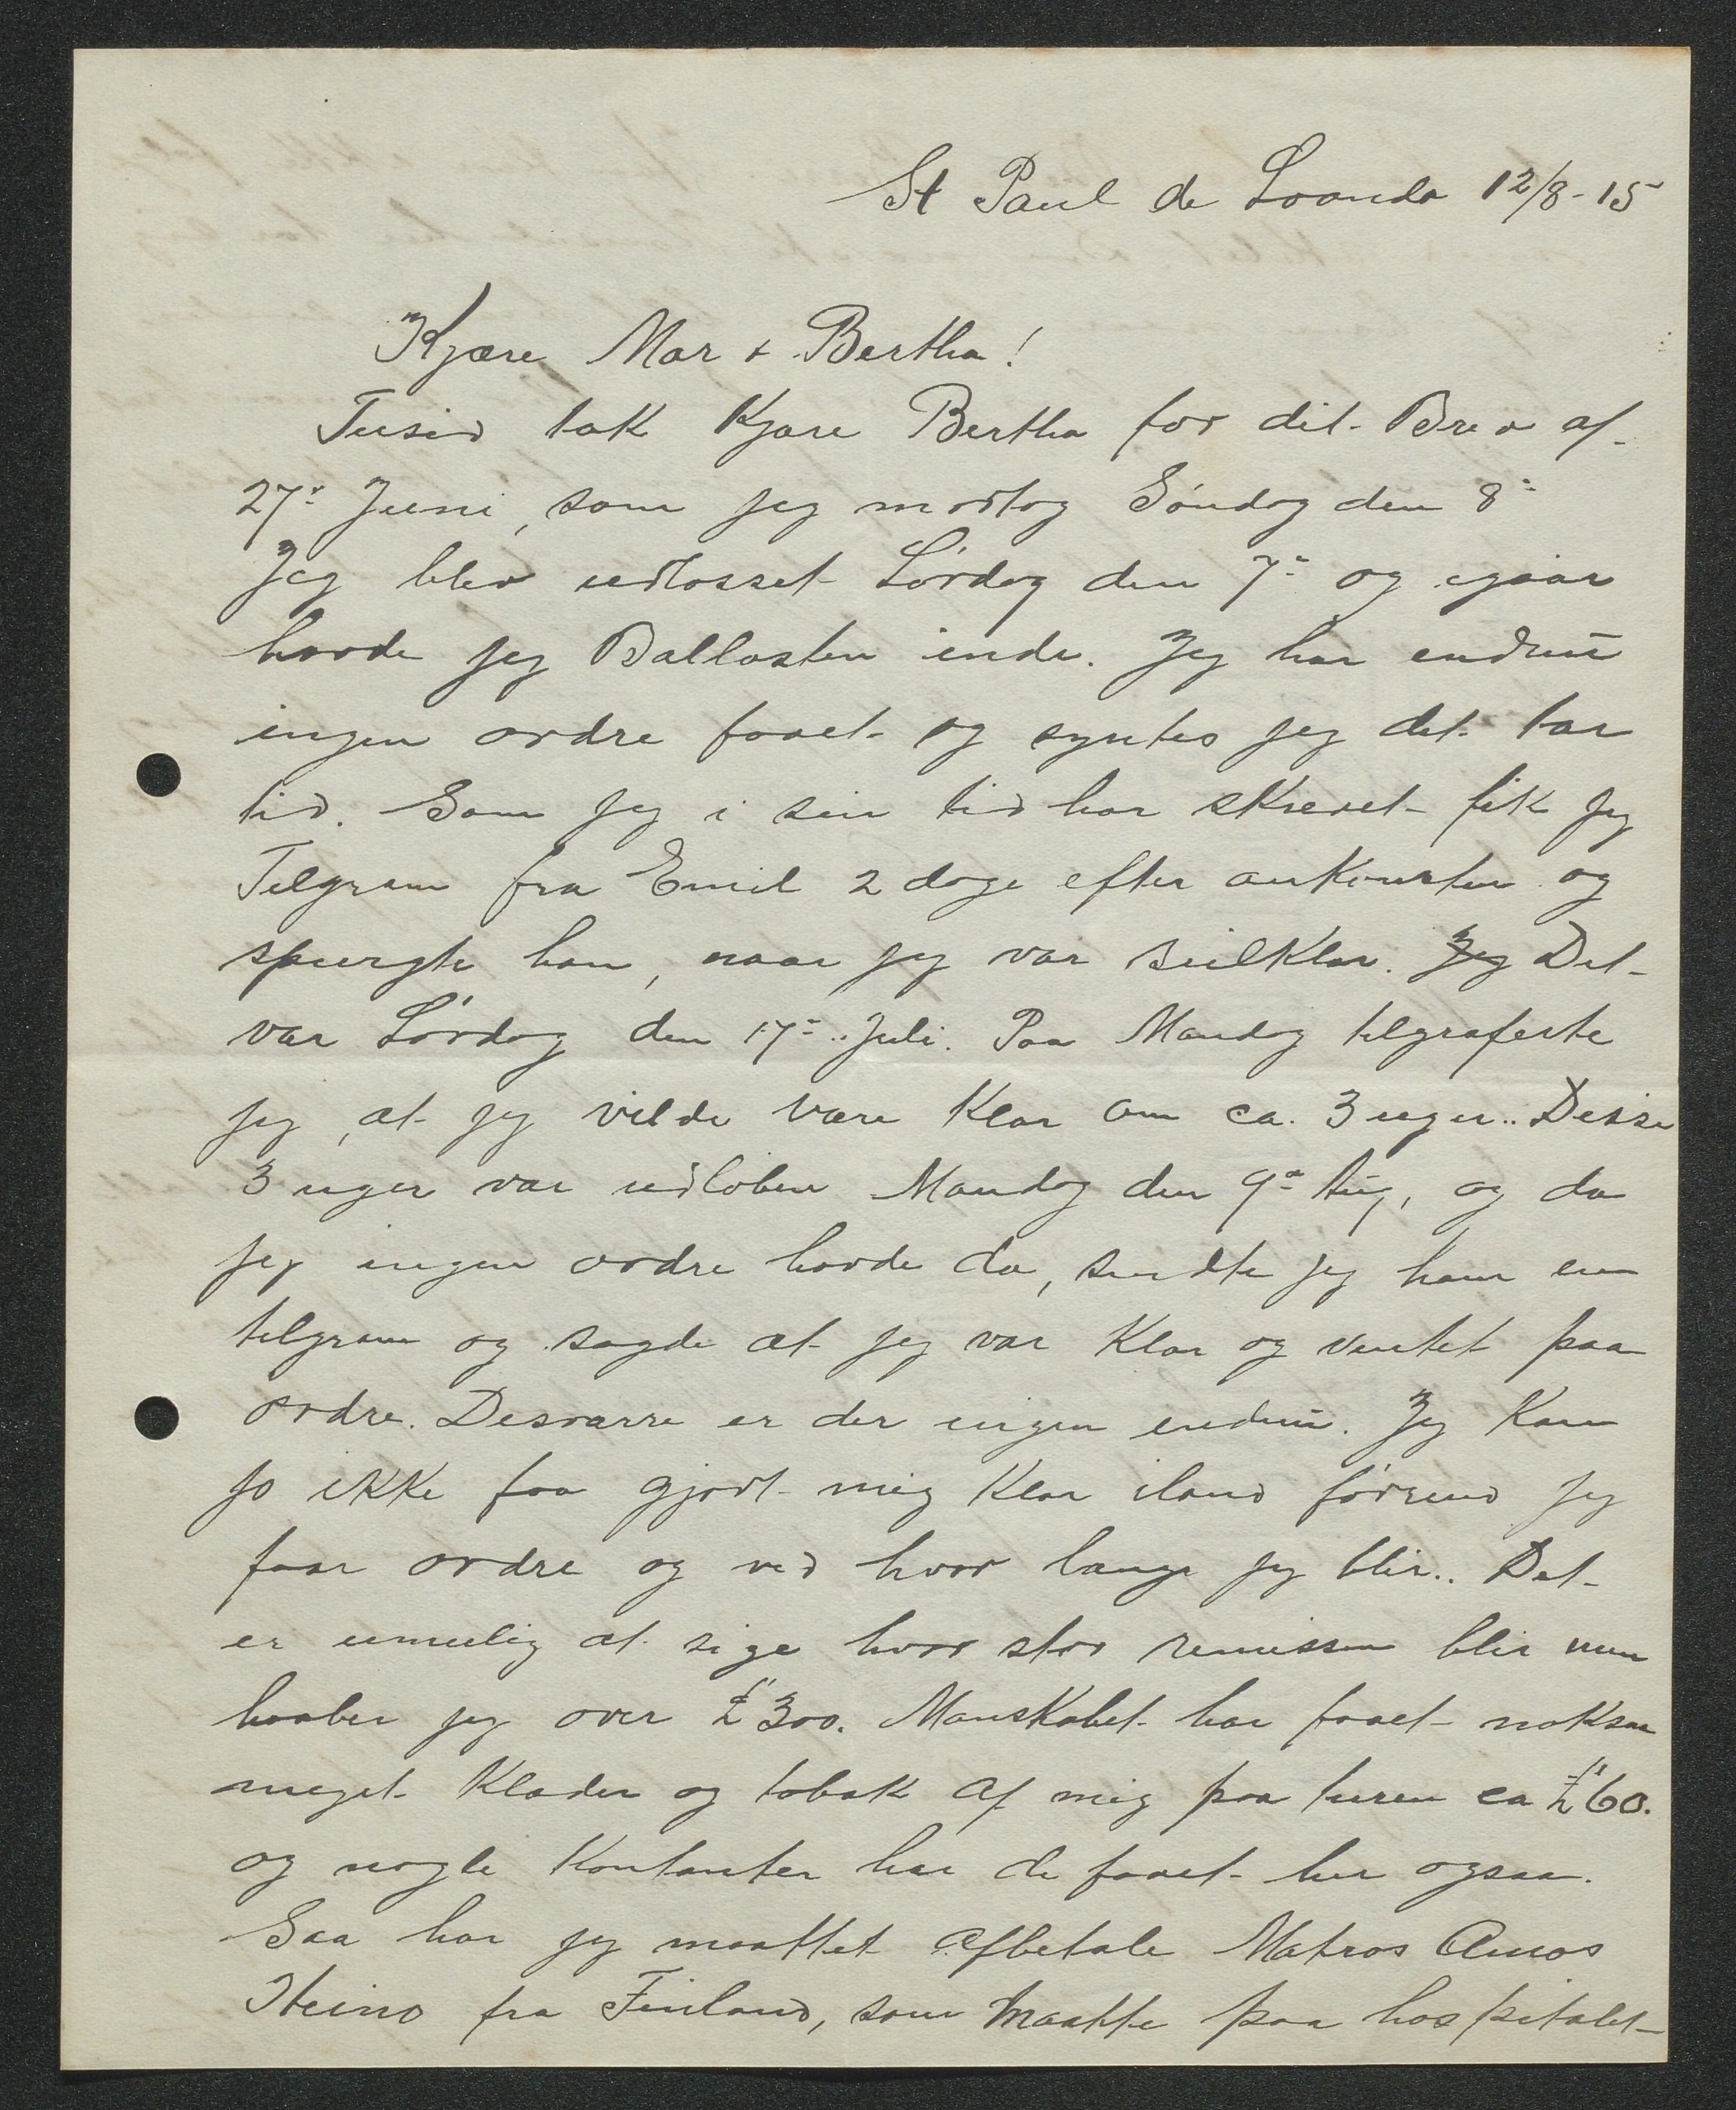 St Paul de Loanda 12/8-15
Kjære Mor & Bertha!
Tusind tak Kjære Bertha for dit Brev af
27de Juni, som jeg modtog Söndag den 8de
Jeg blev udlosset Lördag den 7de og igaar
havde jeg Ballasten inde. Jeg har endnu
ingen ordre faaet og syntes jeg det tar
tid. Som jeg i sin tid har skrevet fik jeg
Telgram fra Emil 2 dage efter ankomsten og
spurgte han, naar jeg var seilklar. Jeg Det
var Lördag den 17de Juli. Paa Mandag telgraferte
jeg, at jeg vilde være Klar om ca. 3 uger. Disse
3 uger var udlöben Mandag den 9de Aug, og da
jeg ingen ordre havde da, sendte jeg ham en
telgram og sagde at jeg var Klar og ventet paa
ordre. Desværre er der ingen endnu. Jeg Kan
jo ikke faa gjort mig Klar iland förend jeg
faar ordre og ved hvor længe jeg blir. Det
er umulig at sige hvor stor remissen blir men
haaber jeg over £ 300. Manskabet har faaet noksaa
meget Klæder og tobak af mig paa turen ca £ 60.
og nogle Kontanter har de faaet her ogsaa.
Saa har jeg maattet afbetale Matros Amos
Heino fra Finland, som maatte paa hospitalet